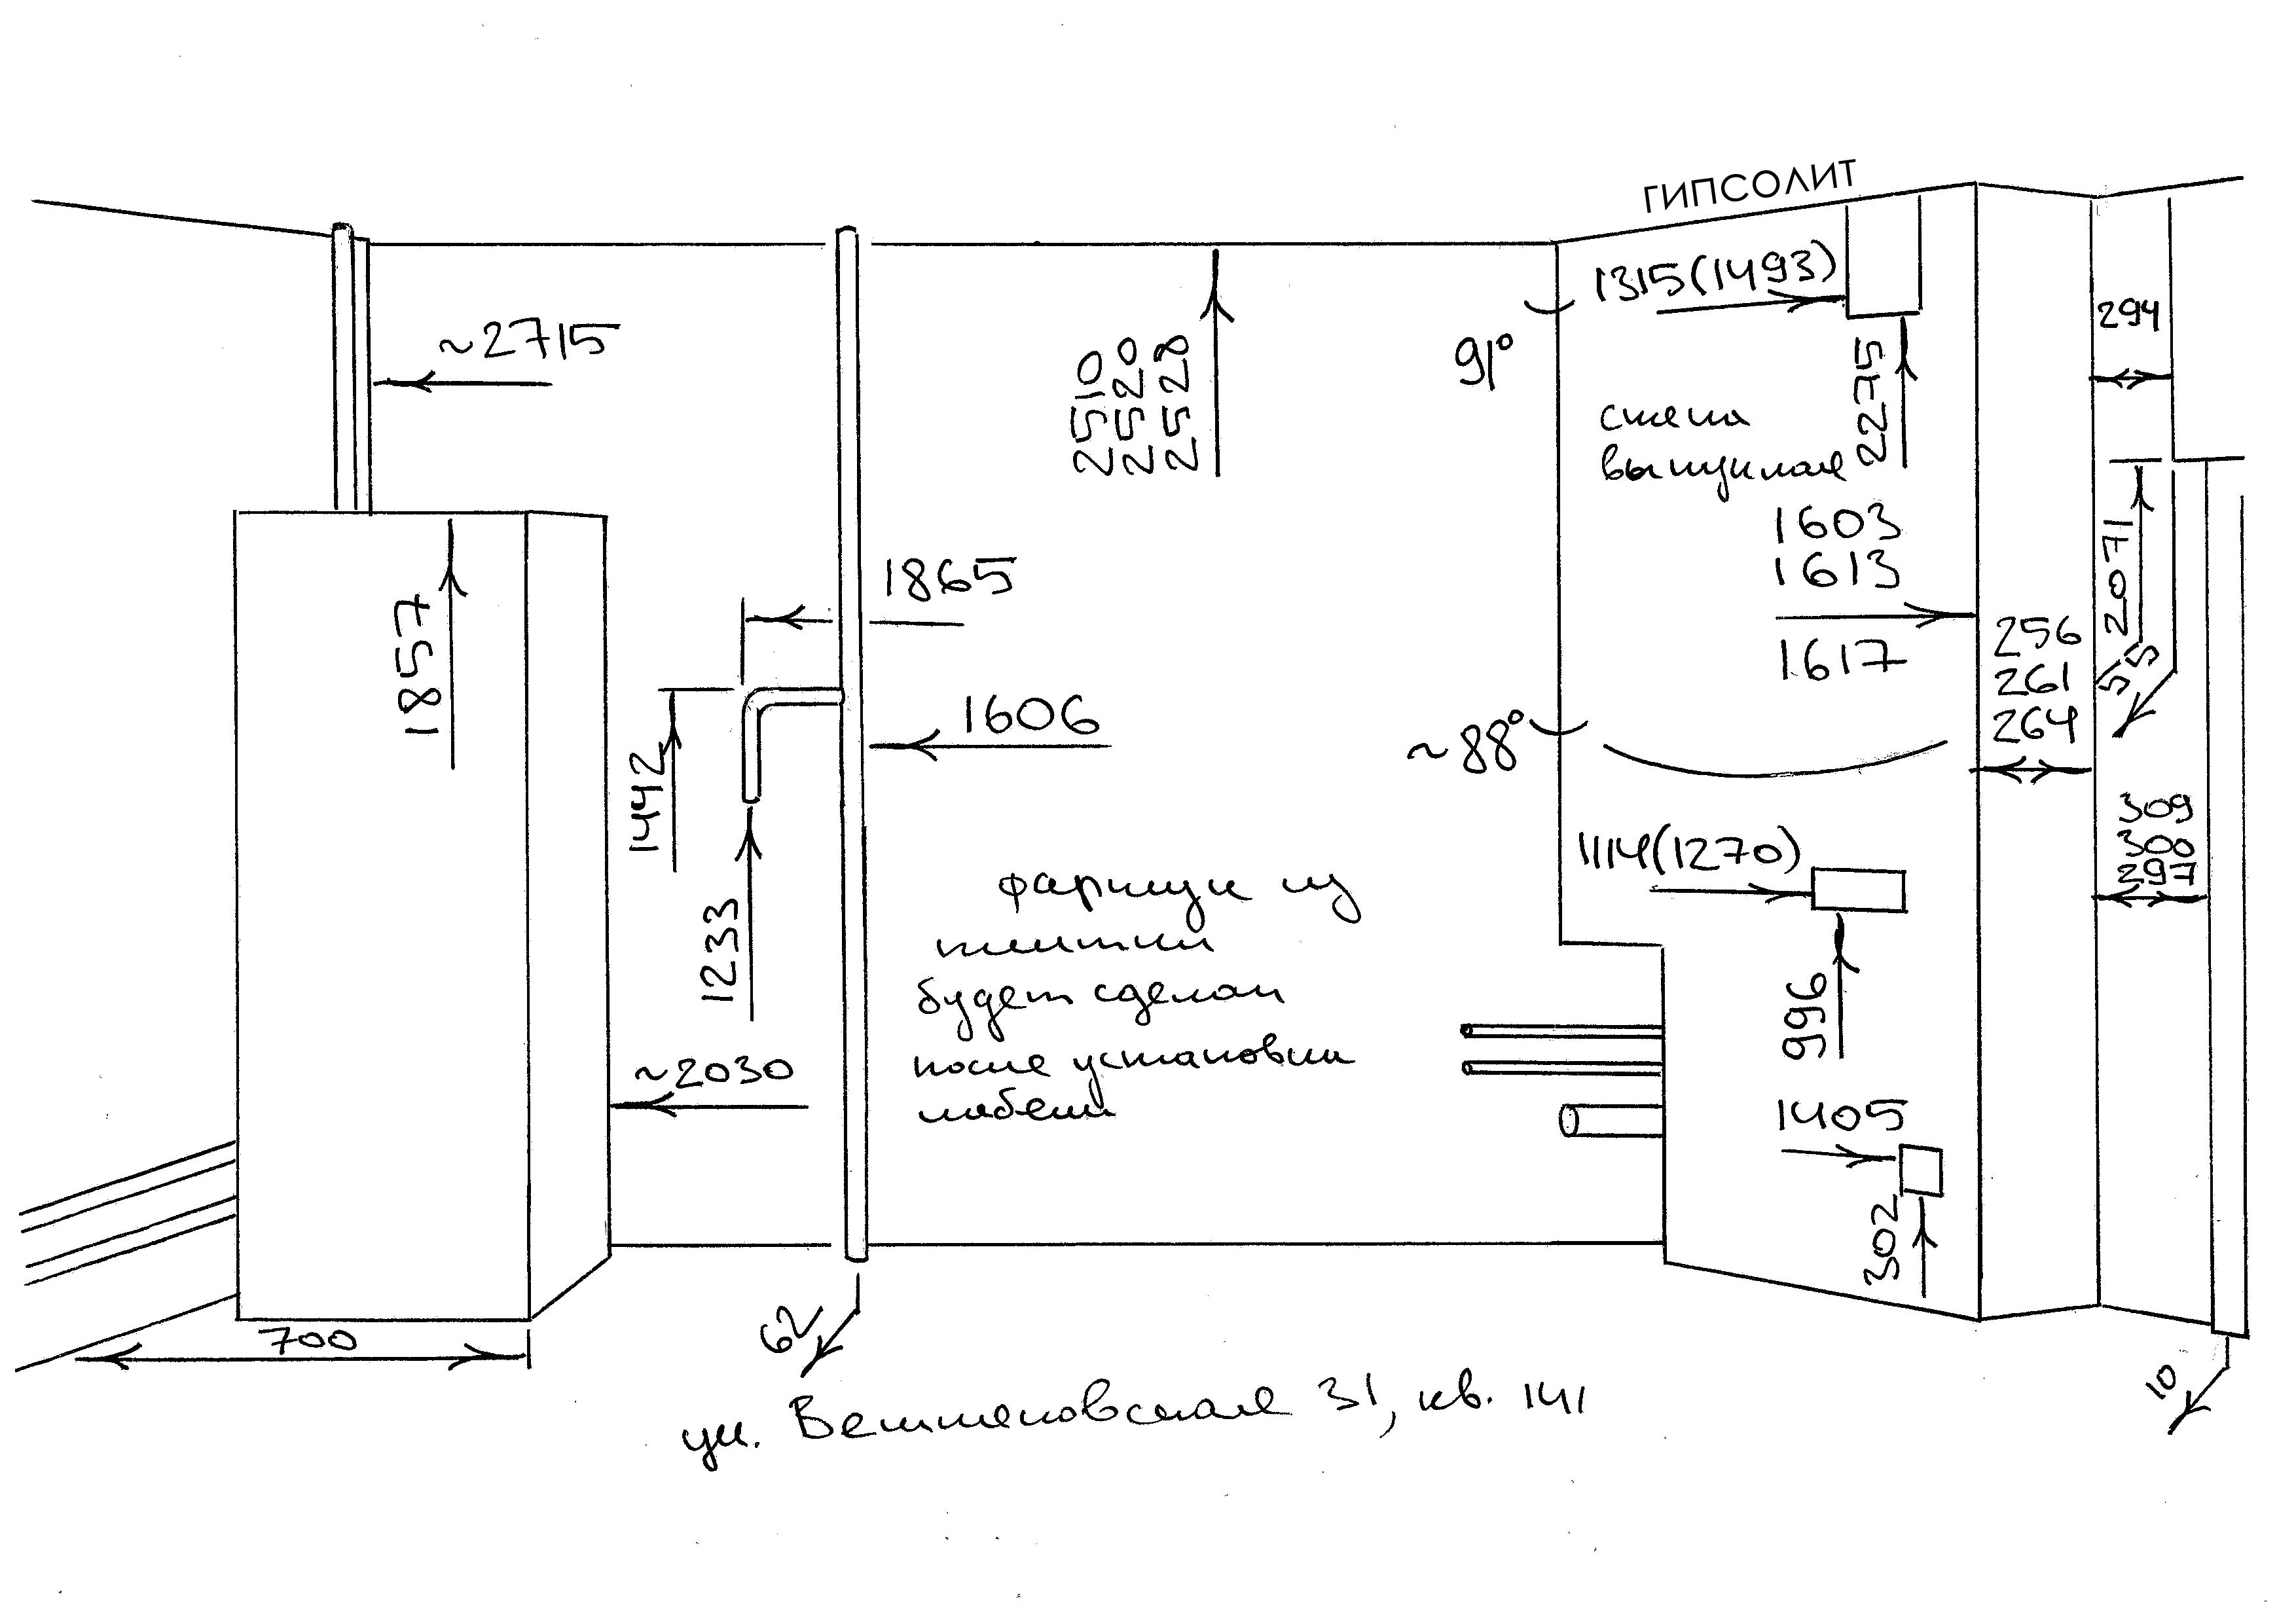 ГИПСОЛИТ
1315(1493)
~2715
294
2510
2520
2528
91°
2275
стена
выпуклая
1603
1613
1617
1865
1857
2071
55
256
261
264
1606
~88°
1442
309
300
297
1114(1270)
1233
фартук из
плитки
будет сделан
после установки
мебели
996
~2030
1405
302
700
62
10
ул. Вешняковская 31, кв. 141